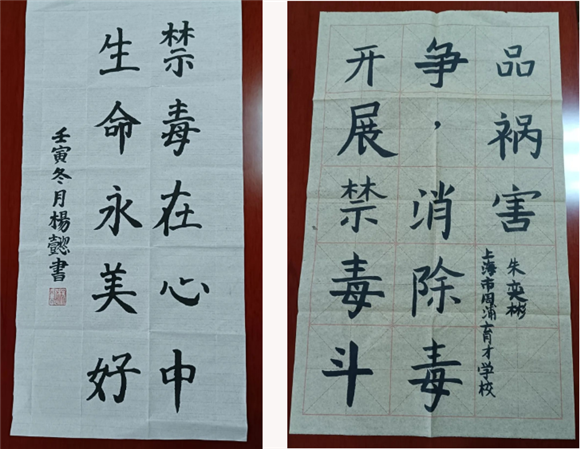 禁毒在心中
生命永美好
壬寅冬月楊懿書
开展禁毒斗
争，消除毒
品祸害
上海市周浦育才学校
朱奕彬